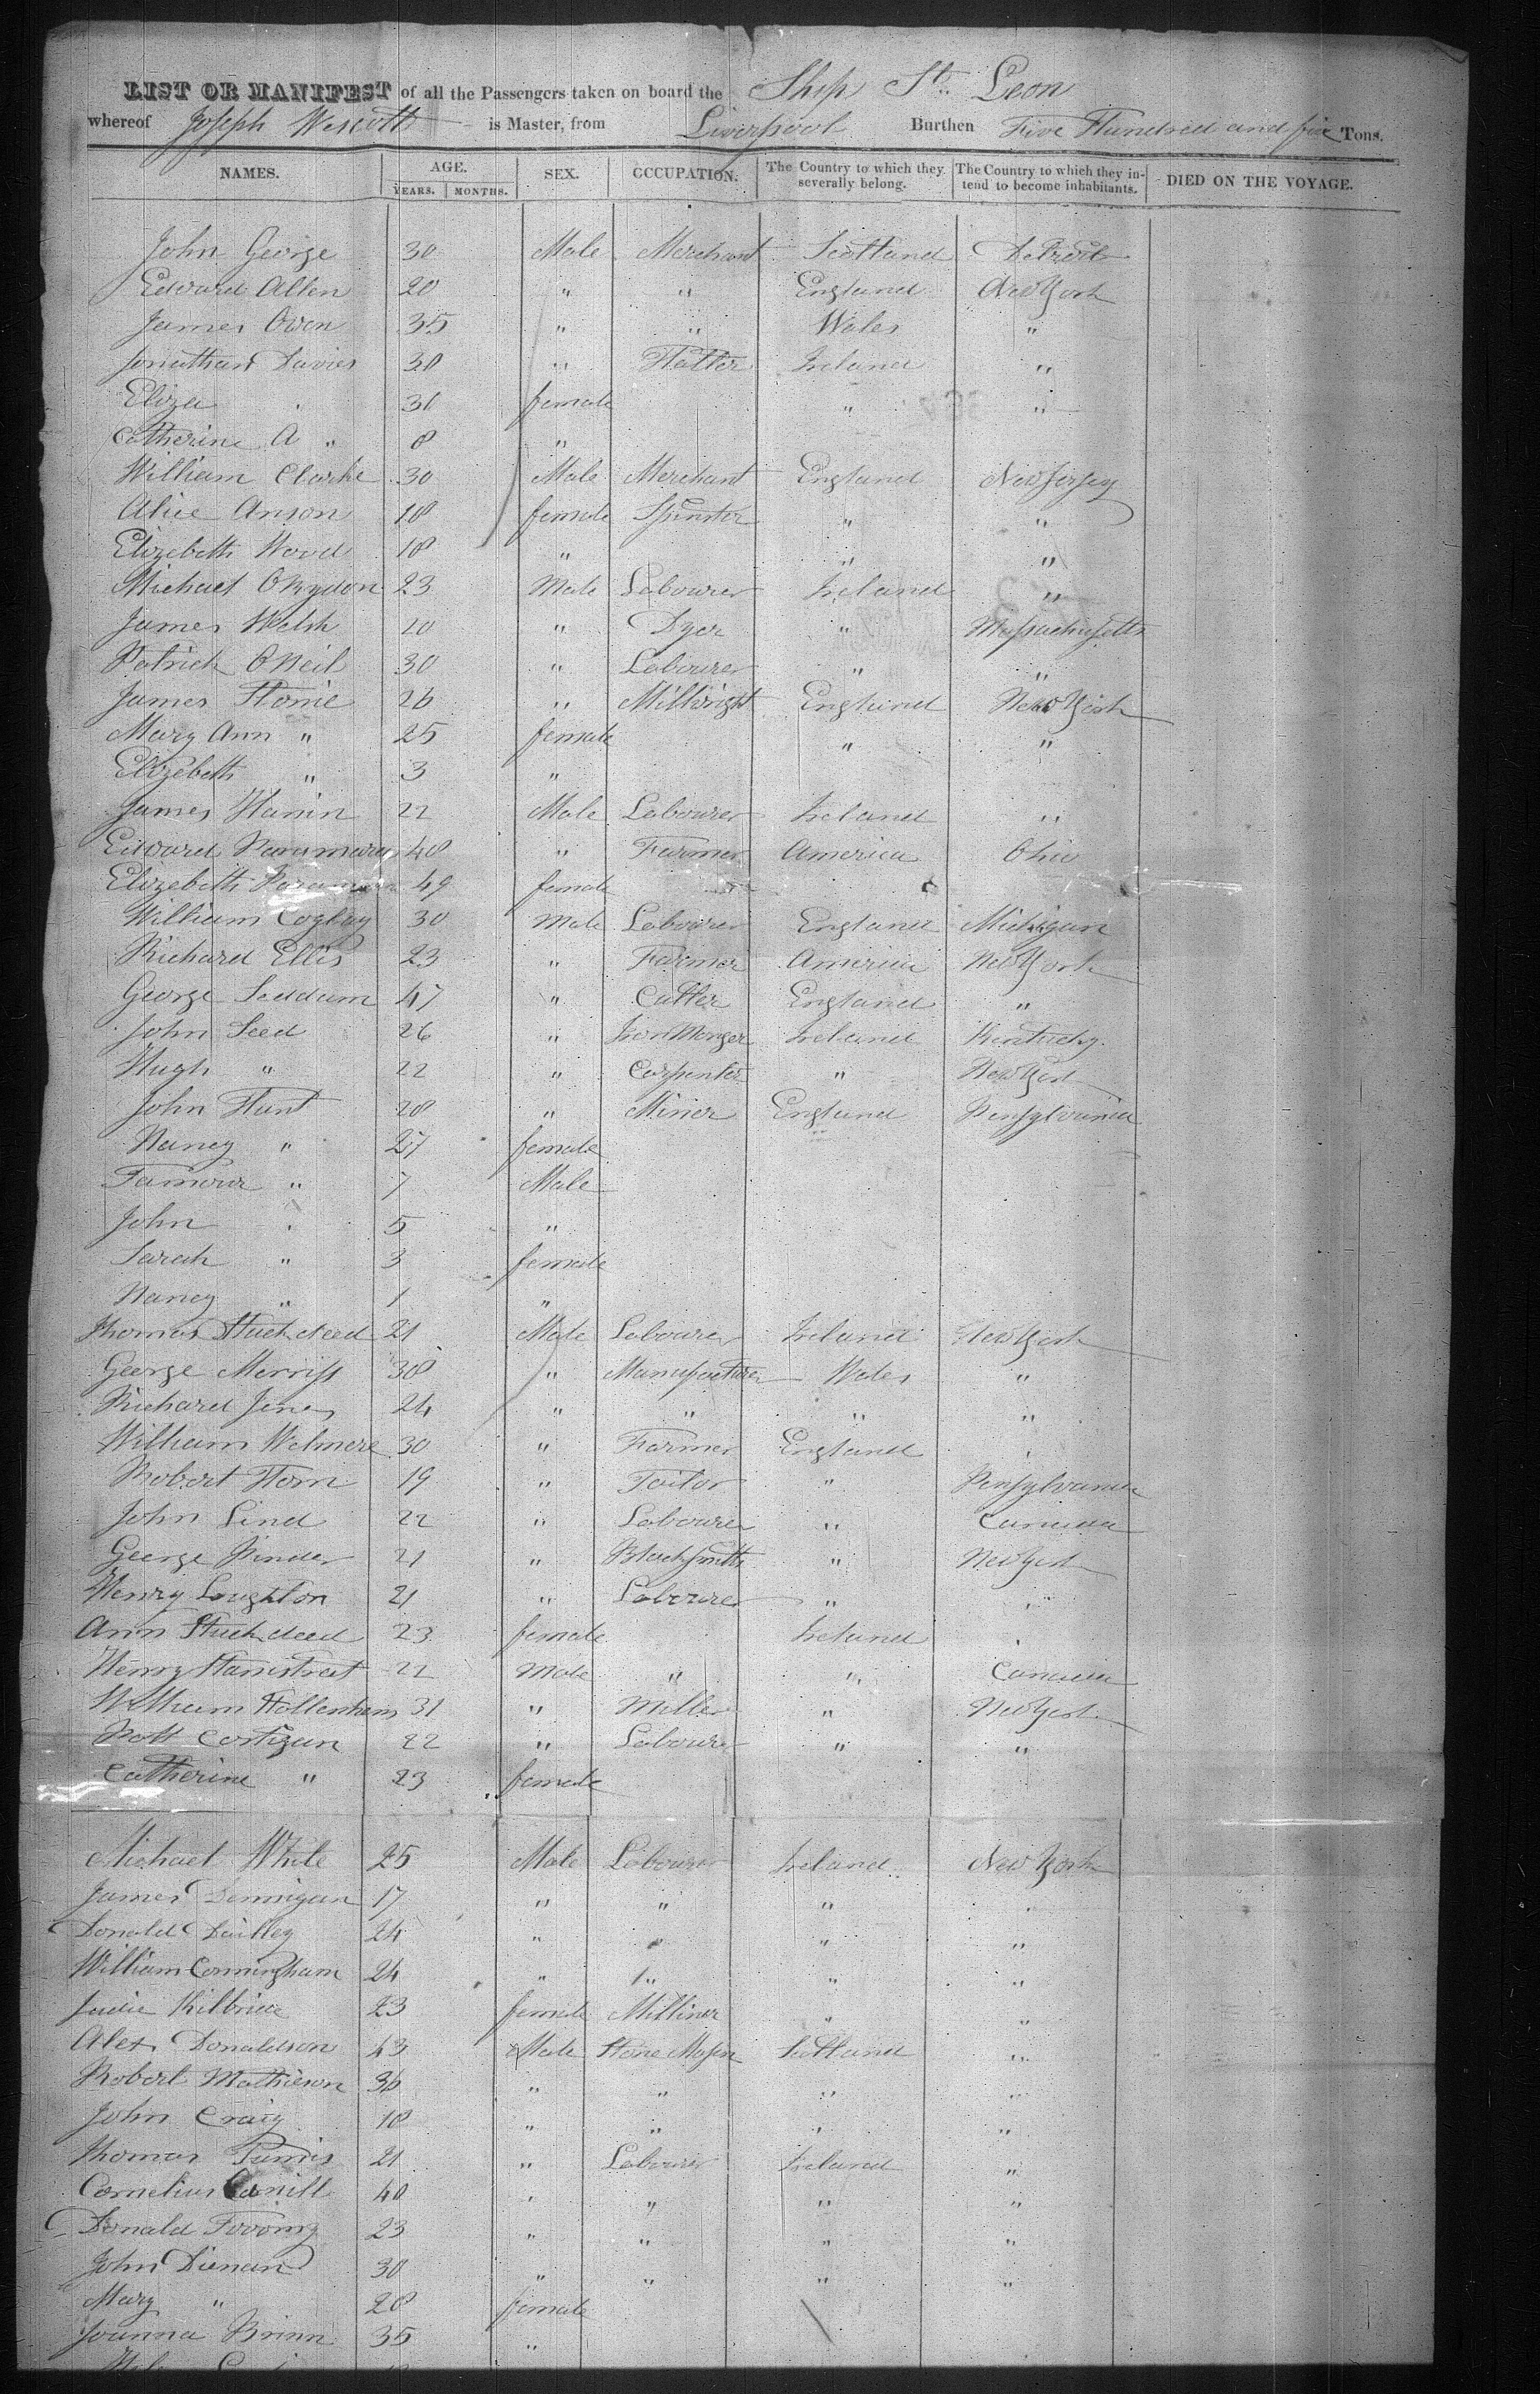 LIST OR MANIFEST of all the Passengers taken on board the Ship St. Leon
whereof Joseph Wescott is Master, from Liverpool Burthen Five Hundred and five Tons.
NAMES. AGE. SEX. OCCUPATION. The Country to which they severally belong. The Country to which they intend to become inhabitants. DIED ON THE VOYAGE.
YEARS. MONTHS.
John George 30 Male Merchant Scotland Detroit
Edward Allen 20 " " England New York
James Owen 35 " " Wales "
Jonathan Davies 30 " Hatter Ireland "
Eliza " 31 female " "
Catherine A " 8 "
William Clarke 30 Male Merchant England New Jersey
Alice Anson 18 female Spinster " "
Elizebeth Wood 18 " " "
Michael 23 Male Labourer Ireland "
James Welsh 20 " Dyer " Massachusetts
Patrick ONeil 30 " Labourer " "
James Horne 26 " Millwright England New York
Mary Ann " 25 female " "
Elizebeth " 3 "
James Hanin 22 Male Labourer Ireland "
Edward 48 " Farmer America Ohio
Elizebeth 49 female
William 30 Male Labourer England Michigan
Richard Ellis 23 " Farmer America New York
George Seddum 47 " Cutter England "
John Seed 26 " Iron Monger Ireland Kentucky.
Hugh " 22 " Carpenter " New York
John Hunt 28 " Miner England Pensylvania
Nancy " 27 female
" 7 Male
John " 5 "
Sarah " 3 female
Nancy " 1 "
Thomas 21 Male Labourer Ireland New York
George Merriss 38 " Manufacturer Wales "
Richard Jones 24 " " " "
William Welmere 30 " Farmer England "
Robert Horn 19 " Tailor " Pensylvania
John Lind 22 " Labourer " Canada
George Pinder 21 " Blacksmith " New York
Henry Loughton 21 " Labourer " "
Ann 23 female Ireland "
Henry Hamstreet 22 Male " " Canada
William 31 " Miller " New York
Patt Costigan 22 " Labourer " "
Catherine " 23 female
Michael White 25 Male Labourer Ireland New York
James Dennigan 17 " " " "
Donald Dailley 24 " " " "
William Conningham 24 " " " "
Judie Kilbride 23 female Milliner " "
Alex Donaldson 43 Male Stone Mason Scotland "
Robert Mathieson 36 " " " "
John Craig 18 " " " "
Thomas 21 " Labourer Ireland "
Cornelius 40 " " " "
Donald 23 " " " "
John Dienan 30 " " " "
Mary " 28 female
Joanna Brinn 35 "